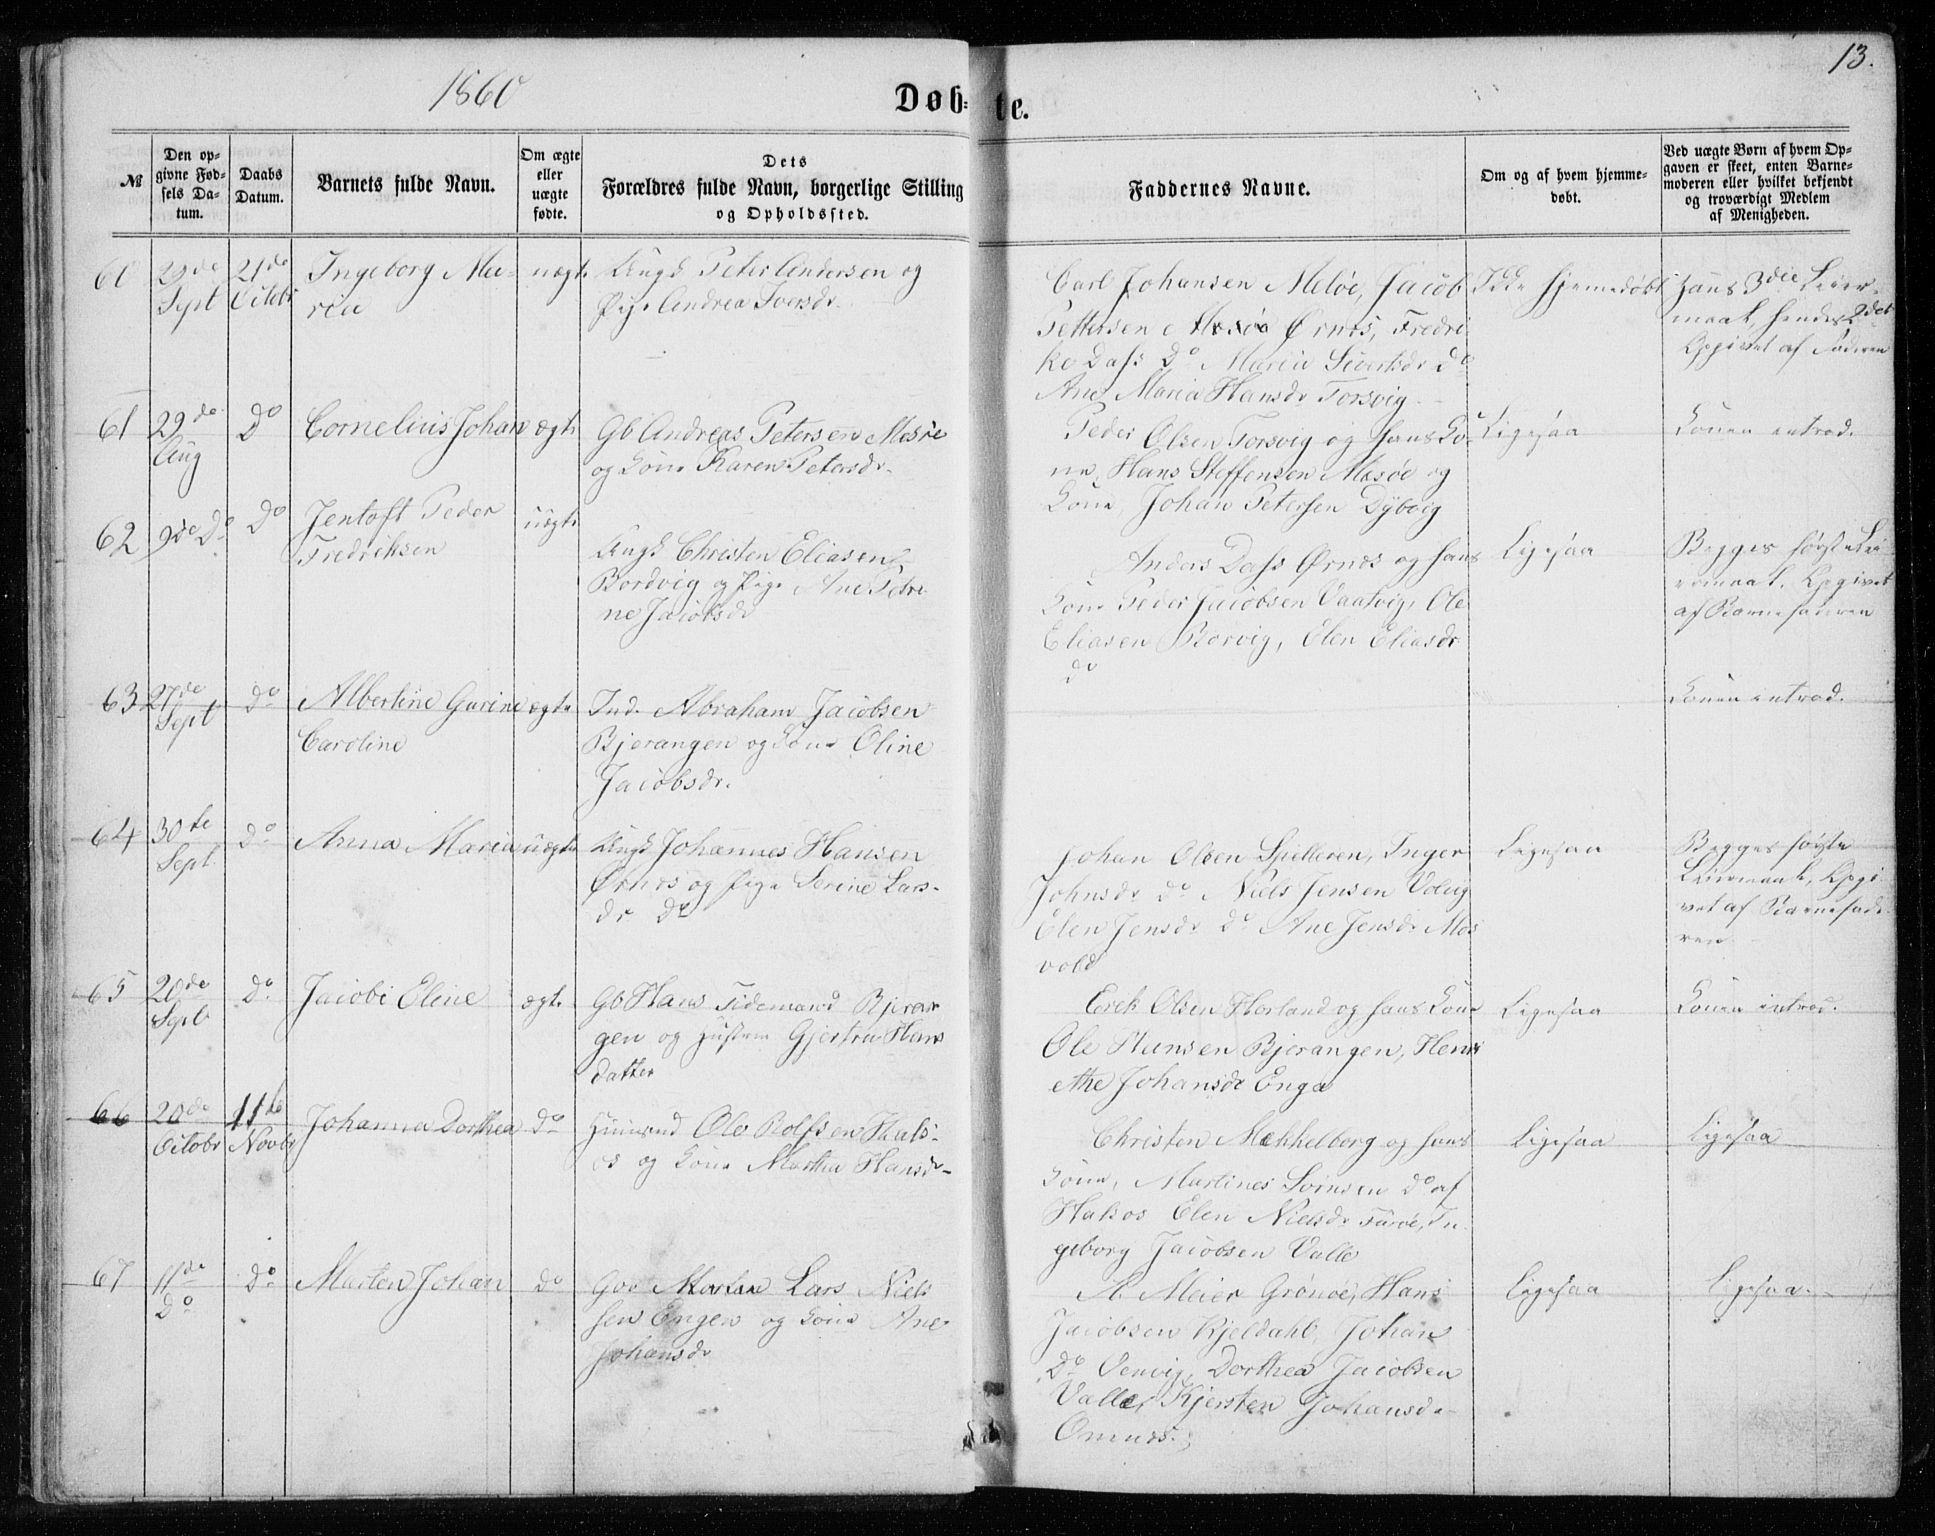 1860
Døb-
te.
13.
№
Den op-
givne Fød-
sels Da-
tum.
Daabs
Datum.
Barnets fulde Navn.
Om ægte
eller
uægte
fødte.
Dets
Forældres fulde Navn, borgerlige Stilling
og Opholdssted.
Faddernes Navne.
Om og af hvem hjemme-
døbt.
Ved uægte Børn af hvem Op-
gaven er skeet, enten Barne-
moderen eller hvilket bekjendt
og troværdigt Medlem
af Menigheden.
60
29de
Sept
21de
Octobr
Ingeborg Ma-
ria
uægte
Ungk Peter Andersen og
Pige Andrea Iversdr.
Carl Johansen Meløe, Jacob
Pettersen Mesøe Ørnes, Fredri-
ke Dass Do Maria Sivertsdr do
Ane Maria Hansdr Torsvig
Ikke hjemmedøbt
Hans 3die Leier-
maal, hendes 2det
Opgivet af Faderen
61
29de
Aug
Do
Cornelius Johan
ægte
Gb Andreas Petersen Mesøe
og Kone Karen Petersdr.
Peder Olsen Torsvig og hans Ko-
ne, Hans Steffensen Mesøe og
Kone, Johan Petersen Dÿbvig
Ligesaa
Konen introd.
62
9de Do
Do
Jentoft Peder
Fredriksen
uægte
Ungk Christen Eliasen
Bordvig og Pige Ane Petri-
ne Jacobsdr
Anders Dass Ørnes og hans
Kone Peder Jacobsen Vaatvig, Ole
Eliasen Borvig, Elen Eliasdr
do
Ligesaa
Begges første Lei-
ermaal. Opgivet
af Barnefaderen
63
27de
Sept
do
Albertine Gurine
Caroline
ægte
Ind. Abraham Jacobsen
Bjerangen og Kone Oline
Jacobsdr.
Konen introd.
64
30te
Sept
do
Anna Maria
uægte
Ungk Johannes Hansen
Ørnes og Pige Serine Lars-
dr do
Johan Olsen Spilleren, Inger
Johnsdr do Niels Jensen Volvig
Elen Jensdr do Ane Jensdr Mos
vold
Ligesaa
Begges første
Leiermaal, Opgi-
vet af Barnefade-
ren
65
20de
Sept
do
Jacobi Eline
ægte
Gb Hans Tidemand Bjeran
gen og Hustru Gjertru Hans
datter
Erik Olsen Horland og hans Kone
Ole Hansen Bjerangen, Henri
ethe Johansdr Enga
Ligesaa
Konen introd.
66
20de
Octobr
11te
Novbr
Johanna Dorthea
do
Huusmd Ole Rolfsen Hals-
os og Kone Martha Hansdr
Christen Mehhelborg og hans
Kone, Martines Svinsen do af
Halsos Elen Nielsdr Farøe, In-
geborg Jacobsen Valle
Ligesaa
Ligesaa
67
11de
Do
Do
Marten Johan
do
Morten Lars Niel
sen Engen og Kone Ane
Johansdr
A. Meier Grønøe, Hans
Jacobsen Kjeldahl, Johan
Do Venvig, Dorthea Jacobsen
Valle, Kjersten Johansdr
Omnes.
Ligesaa
Ligesaa.